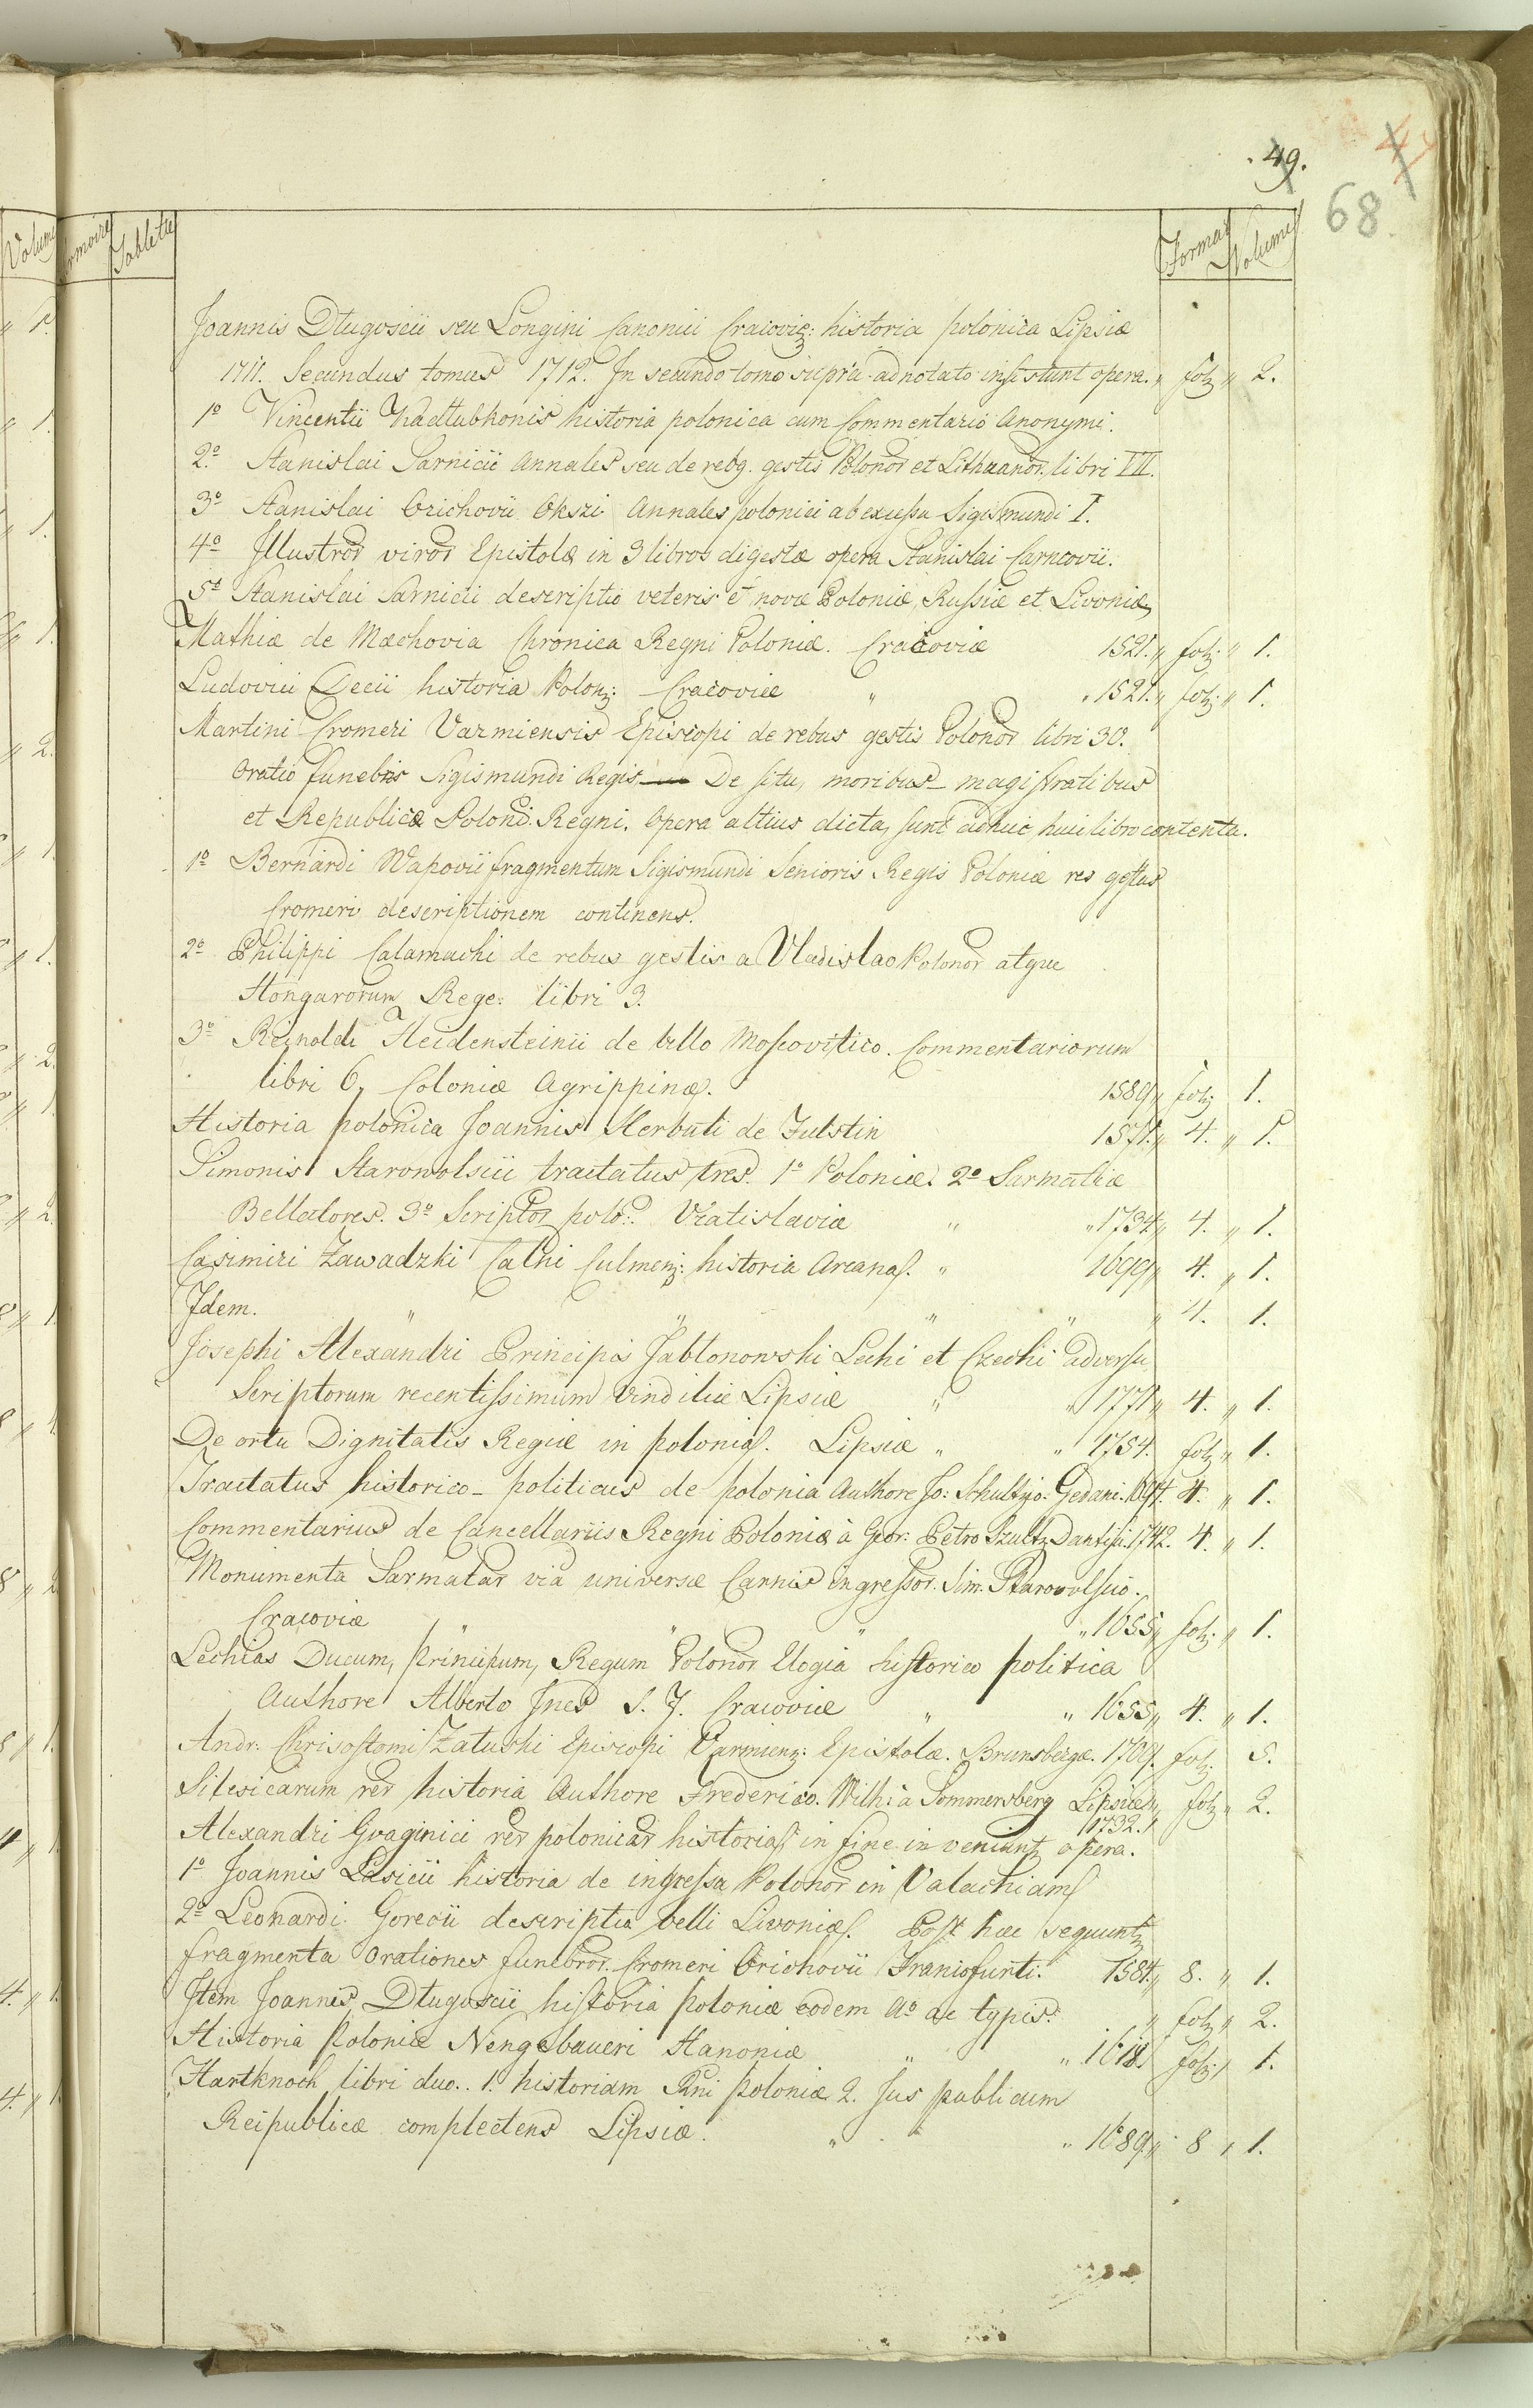 49.
68
Volumes Armoires Tablettes Format Volumes
Joannis Długoscii seu Longini Canonici Cracovię: historia polonica Lipsiæ
1711. Secundus tomus 1712. In secundo tomo supra adnotato insistunt opera. „ folz „ 2.
1º Vincentii Kadlubkonis historia polonica cum Commentario Anonymi.
2º Stanislai Sarnicii Annales seu de rebq. gestis Polonor et Lithuanor. libri VII.
3º Stanislai Orichovii Okszi Annales polonici ab excessu Sigismundi I.
4º Illustror viror Epistolæ in 3 libros digestæ opera Stanislai Carncovii.
5º Stanislai Sarnicii descriptio veteris et novæ Poloniæ, Russiæ et Livoniæ,
Mathiæ de Mæchovia Chronica Regni Poloniæ. Cracoviæ 1521. „ folz: „ 1.
Ludovici Decii historia Polonz: Cracoviæ „ „ 1521. „ folz: „ 1.
Martini Cromeri Varmiensis Episcopi de rebus gestis Polonor libri 30.
Oratio funebris Sigismundi Regis De situ, moribus magistratibus
et Republica Poloni Regni. Opera altius dicta, sunt adhuc huic libro contenta.
1º Bernardi Wapovii fragmentum Sigismundi Senioris Regis Poloniæ res gestas
Cromeri descriptionem continens.
2º Philippi Calamachi de rebus gestis a Vladislao Polonor atque
Hongarorum Rege: libri 3.
3º Reinoldi Heidensteinii de bello Moscovitico. Commentariorum
libri 6, Coloniæ Agrippinæ. 1589 „ folz 1.
Historia polonica Joannis Herbuti de Fulstin 1571. „ 4. „ 1.
Simonis Starowolscii tractatus tres. 1º Poloniæ. 2º Sarmatiæ
Bellatores. 3º Scriptor polo:. Vratislaviæ „ „ 1734 „ 4. „ 1.
Casimiri Zawadzki Calni Culmenz: historia Arcana. „ 1699 „ 4. „ 1.
Idem. „ „ „ „ „ 4. 1.
Josephi Alexandri Principis Jabłonowski Lechi et Czechi adversu
Scriptorum recentissimum Vindiliæ Lipsiæ „ „ 1771 „ 4. „ 1.
De ortu Dignitatis Regiæ in polonia. Lipsiæ „ „ 1754. folz „ 1.
Tractatus historico-politicus de polonia Authore Jo: Schultzio. Gedani. 1694. 4. „ 1.
Commentarius de Cancellariis Regni Poloniæ à Geor: Petro Szultz Dantisi. 1742. 4. „ 1.
Monumenta Sarmatar via universæ Carnis ingressor. Sim. Starowolscio.
Cracoviæ „ „ „ „ 1655 „ folz: „ 1.
Lechias Ducum, Principum, Regum Polonor Elogia historico politica
Authore Alberto Ines S. J. Cracoviæ „ „ 1655 „ 4. „ 1.
Andr: Chrisostomi Załuski Episcopi Varmienz: Epistolæ. Brunsbergæ. 1709. folz: 5.
Silesicarum rer historia Authore Frederico. Wilh: à Sommersberg Lipsiæ „ folz „ 2.
1732.
Alexandri Gvaginici rer polonicar historia in fine inveniunt opera.
1º Joannis Lasicii historia de ingressu Polonor in Valachiam
2º Leonardi Gorecii descriptia belli Livoniæ. Post hæc sequuntz
fragmenta Orationes funebror. Cromeri Orichovii Franiofurti. 1584. „ 8. „ 1.
Item Joannis Długoscii historia poloniæ eodem Aº ac typis: „ folz „ 2.
Historia Poloniæ Nengebaueri Hanoniæ „ „ 1618 folz: „ 1.
Hartknoch libri duo.. 1. historiam Rni poloniæ 2. Jus publicum
Reipublicæ complectens Lipsiæ. „ „ 1689 „ 8 „ 1.